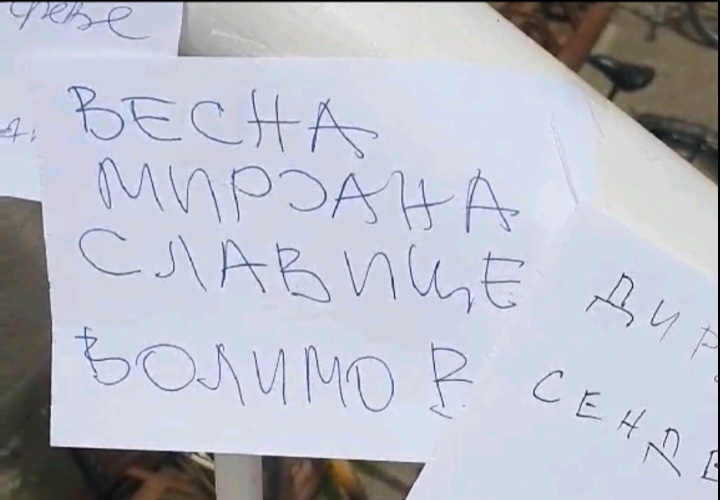 ВЕСНА
МИРЈАНА
СЛАВИЦЕ
ВОЛИМО В
ДИР
СЕНДВ